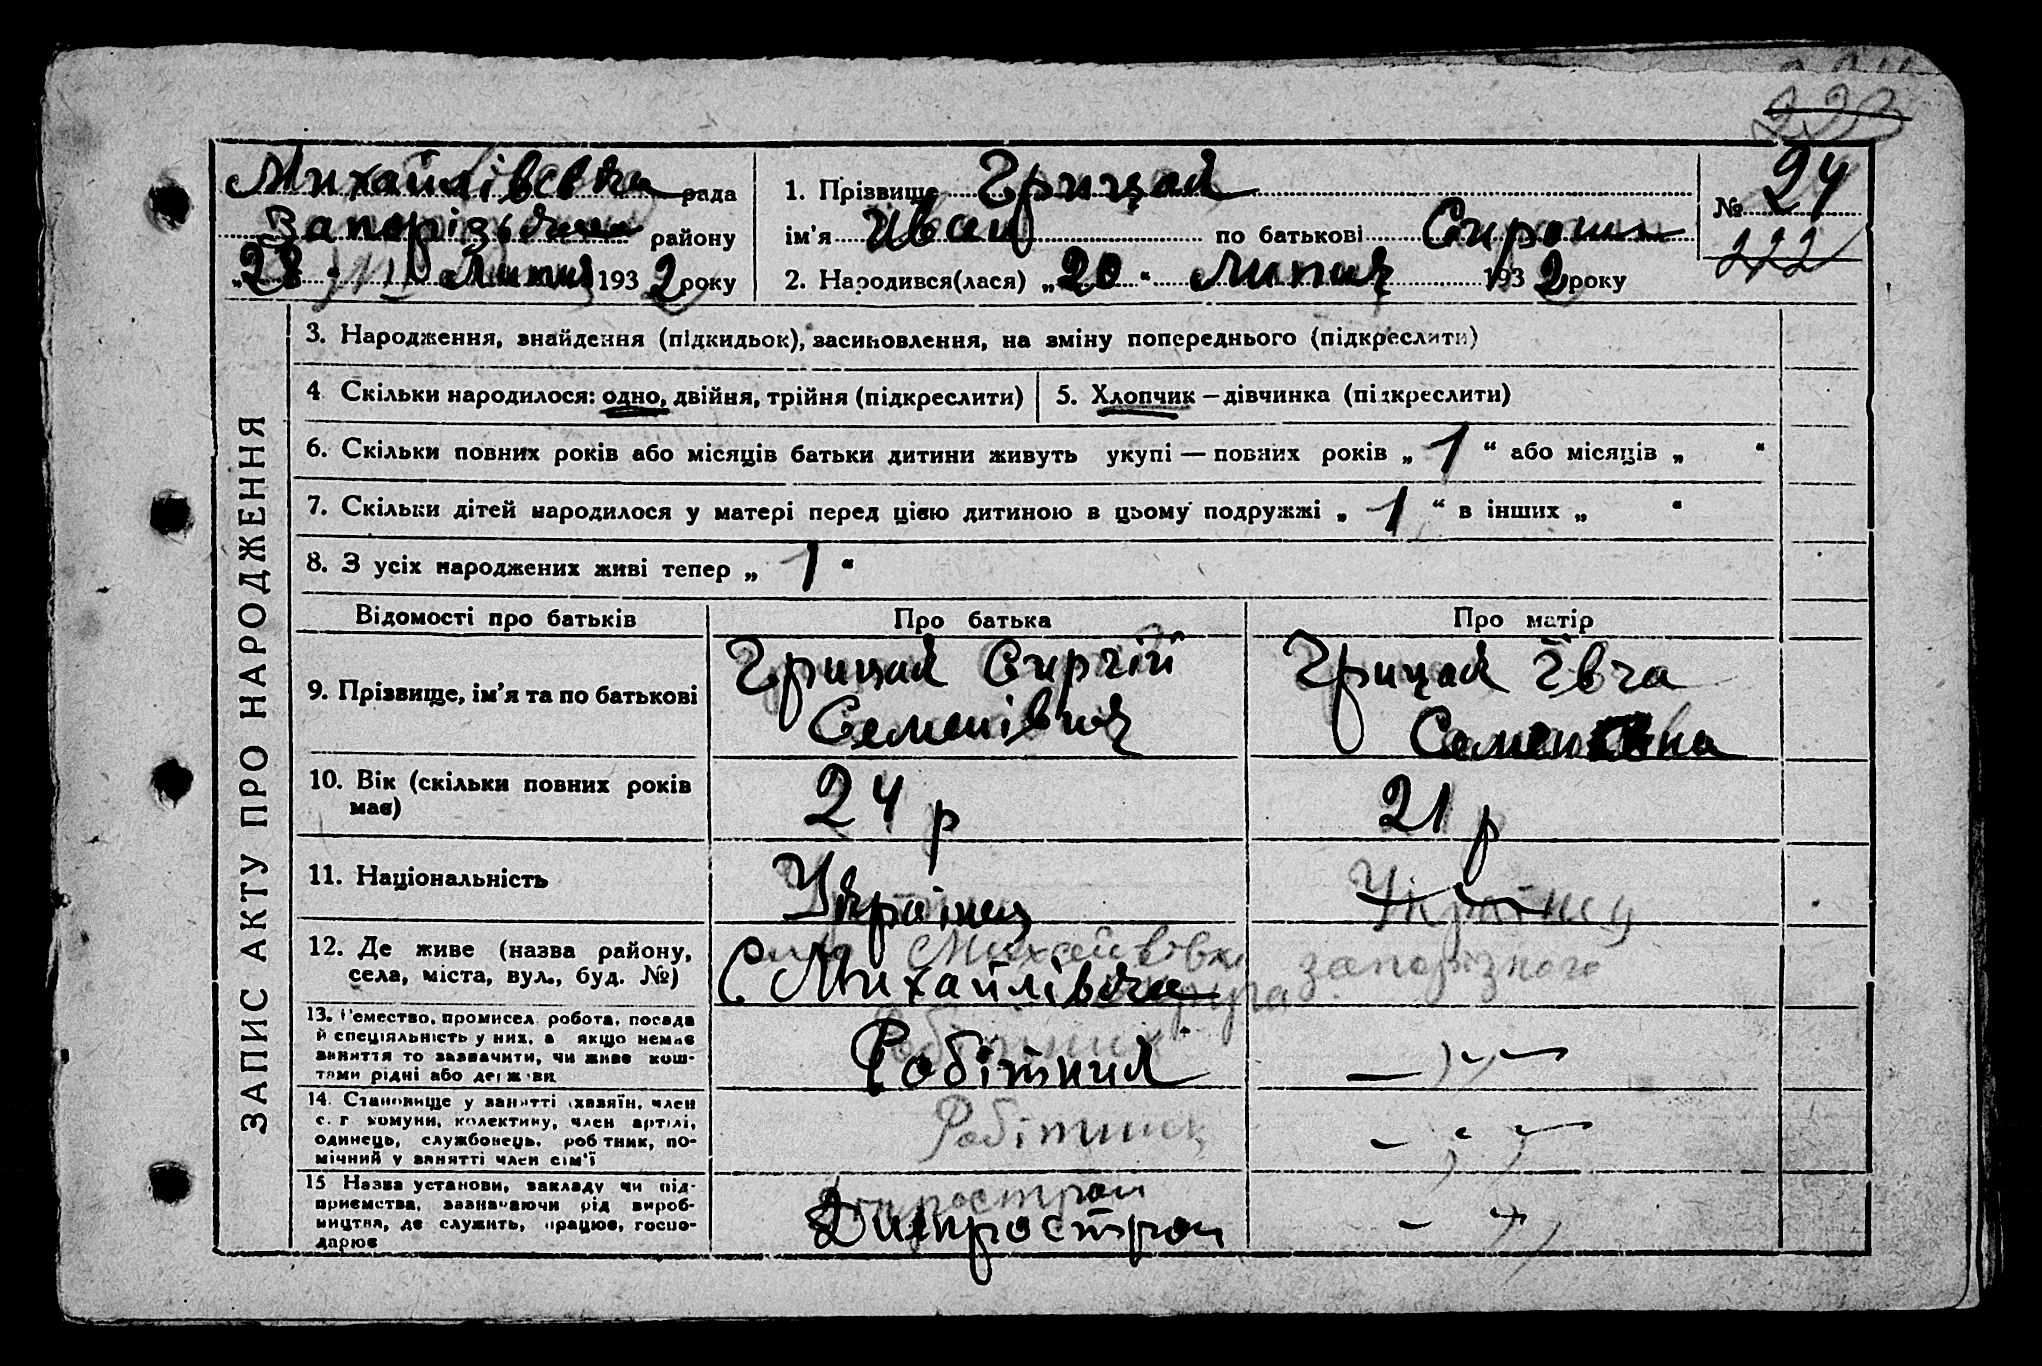 223
Михайлівська рада
Запорізького району
„28“ VII Липня 1932 року
1. Прізвище Грицай
ім'я Иван по батькові
2. Народився(лася) „20“ Липня 1932 року
№ 24
222
ЗАПИС АКТУ ПРО НАРОДЖЕННЯ
3. Народження, знайдення (підкидьок), засиновлення, на зміну попереднього (підкреслити)
4 Скільки народилося: одно, двійня, трійня (підкреслити)
5. Хлопчик – дівчинка (підкреслити)
6. Скільки повних років або місяців батьки дитини живуть укупі — повних років „ 1 “ або місяців „ “
7. Скільки дітей народилося у матері перед цією дитиною в цьому подружжі „ 1 “ в інших „ “
8. З усіх народжених живі тепер „ 1 “
Відомості про батьків
Про батька
Про матір
9. Прізвище, ім'я та по батькові
Грицай Сиргій
Семенівич
Грицай Євга
Семеновна
10. Вік (скільки повних років
має)
24 р
21 р
11. Національність
Українец
Українец
12. Де живе (назва району,
села, міста, вул., буд. №)
Михайлівка запорізького
С Михайлівка
13. Ремество, промисел, робота, посада
й спеціяльність у них, а якщо немає
заняття то зазначити, чи живе кош-
тами рідні або держави
Робітник
14. Становище у занятті (хазяїн, член
с. г комуни, колективу, член артілі,
одинець, службовець, робітник, по-
мічний у занятті член сім'ї
Робітник
15 Назва установи, закладу чи під-
приємства, зазначаючи рід вироб-
ництва, де служить, працює, госпо-
дарює
Днепрострой
Днепрострой